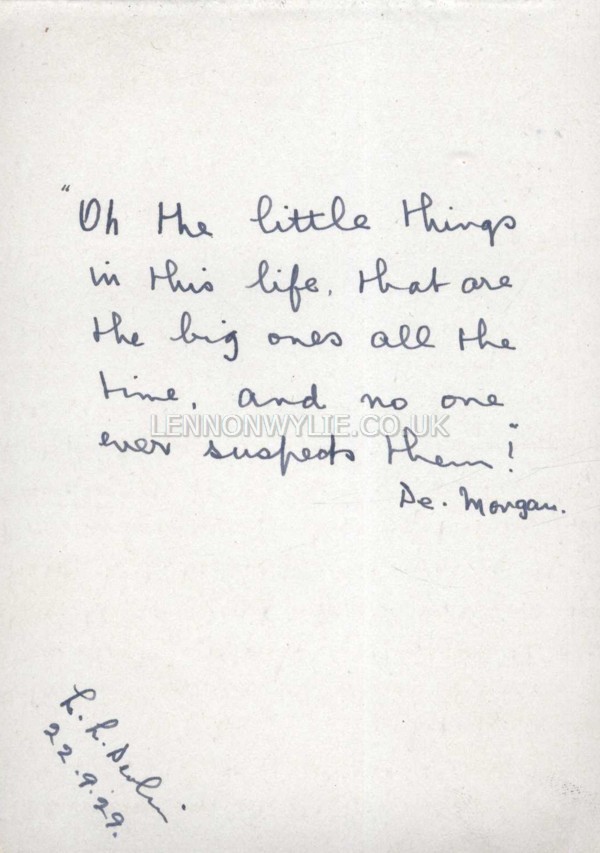 "Oh the little things
in this life, that are
the big ones all the
time, and no one
LENNONWYLIE.CO.UK
ever suspects them!"
De. Morgan.
22.9.29.